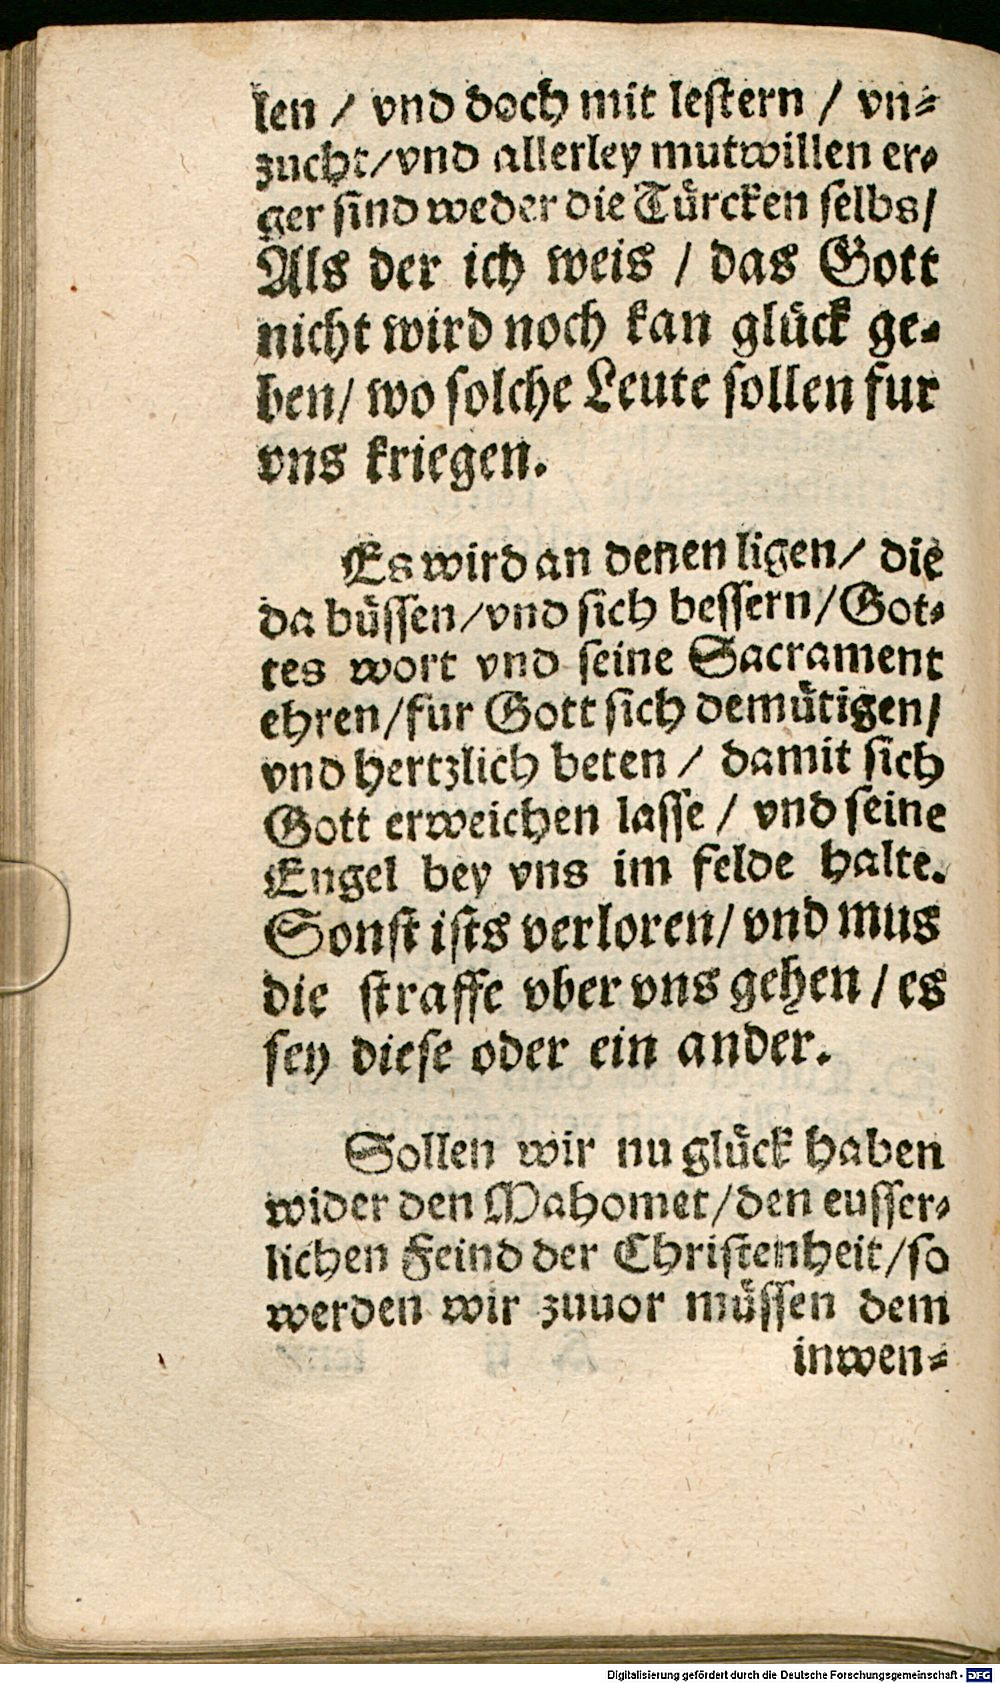 len / vnd doch mit lestern / vn⸗
zucht/vnd allerley mutwillen er⸗
ger sind weder die Tuͤrcken selbs/
Als der ich weis / das Gott
nicht wird noch kan gluͤck ge⸗
ben/ wo solche Leute sollen fur
vns kriegen.
Es wird an denen ligen/ die
da buͤssen/vnd sich bessern/Got⸗
tes wort vnd seine Sacrament
ehren/fur Gott sich demuͤtigen/
vnd hertzlich beten / damit sich
Gott erweichen lasse / vnd seine
Engel bey vns im felde halte.
Sonst ists verloren/vnd mus
die straffe vber vns gehen/es
sey diese oder ein ander.
Sollen wir nu gluͤck haben
wider den Mahomet/den eusser⸗
lichen Feind der Christenheit/so
werden wir zuuor muͤssen dem
inwen⸗
Digitalisierung gefördert durch die Deutsche Forschungsgemeinschaft - DFG